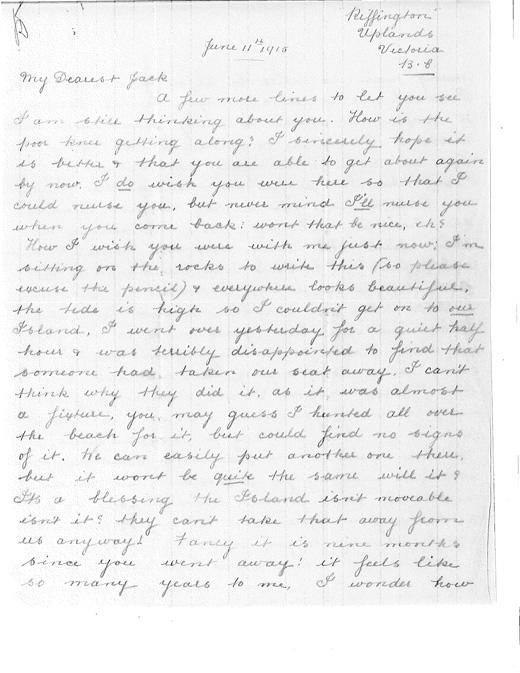 Riffington
Uplands
Victoria
B.C
June 11th 1915
My Dearest Jack
A few more lines to let you see
I am still thinking about you. How is the
poor knee getting along? I sincerely hope it
is better & that you are able to get about again
by now. I do wish you were here so that I
could nurse you, but never mind I'll nurse you
when you come back: wont that be nice, eh?
How I wish you were with me just now; I'm
sitting on the rocks to write this (so please
excuse the pencil) & everywhere looks beautiful,
the tide is high so I couldn't get on to our
Island, I went over yesterday for a quiet half
hour & was terribly disappointed to find that
someone had taken our seat away. I can't
think why they did it, as it was almost
a fixture, you may guess I hunted all over
the beach for it, but could find no signs
of it. We can easily put another one there,
but it wont be quite the same will it?
Its a blessing the Island isn't moveable
isn't it? they can't take that away from
us anyway! Fancy it is nine months
since you went away! it feels like
so many years to me, I wonder how